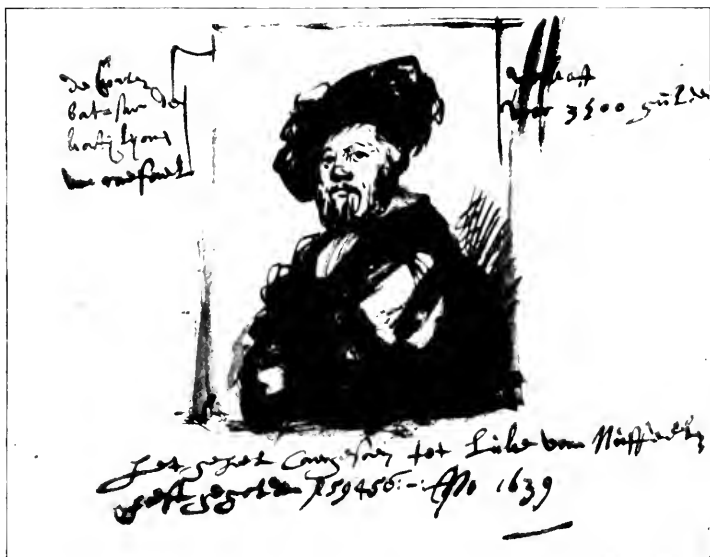 de Conte
batasar de
kastijlyone
van rafael
verkoft
voor 3500 gulden
het geheel tot Luke van Nuffeelen
heeft gegolden f 59456:-: Ao 1639